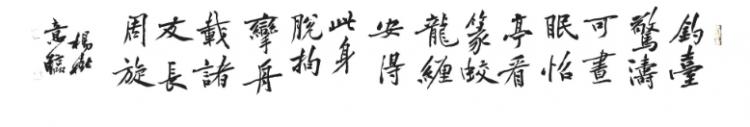 釣臺
驚濤
可畫
眠怡
亭看
篆蛟
龍纏
安得
此身
脫拘
攣舟
載諸
友長
周旋
楊
意臨